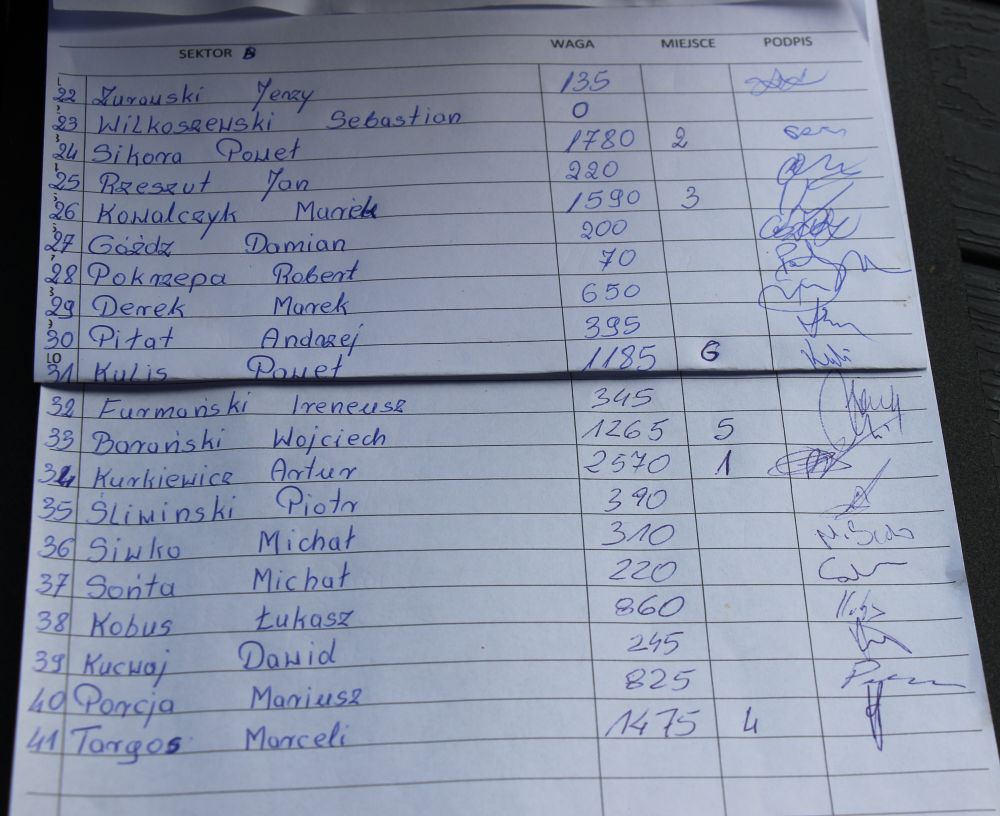 SEKTOR B WAGA MIEJSCE PODPIS
22 Żurowski Jerzy 135
23 Wilkoszewski Sebastian 0
24 Sikora Paweł 1780 2
25 Rzeszut Jan 220
26 Kowalczyk Marek 1590 3
27 Góźdz Damian 200
28 Pokrzepa Robert 70
29 Derek Marek 650
30 Piłat Andrzej 395
31 Kulis Paweł 1185 6
32 Furmański Ireneusz 345
33 Barański Wojciech 1265 5
34 Kurkiewicz Artur 2570 1
35 Śliwinski Piotr 390
36 Siwko Michał 310
37 Sońta Michał 220
38 Kobus Łukasz 860
39 Kucwaj Dawid 245
40 Porcja Mariusz 825
41 Targos Marceli 1475 4